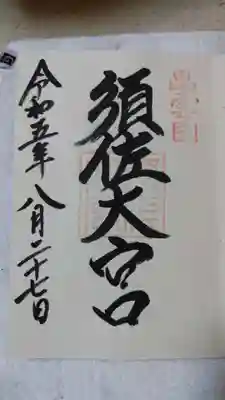 出雲國
須佐大宮
令和五年 八月二十七日